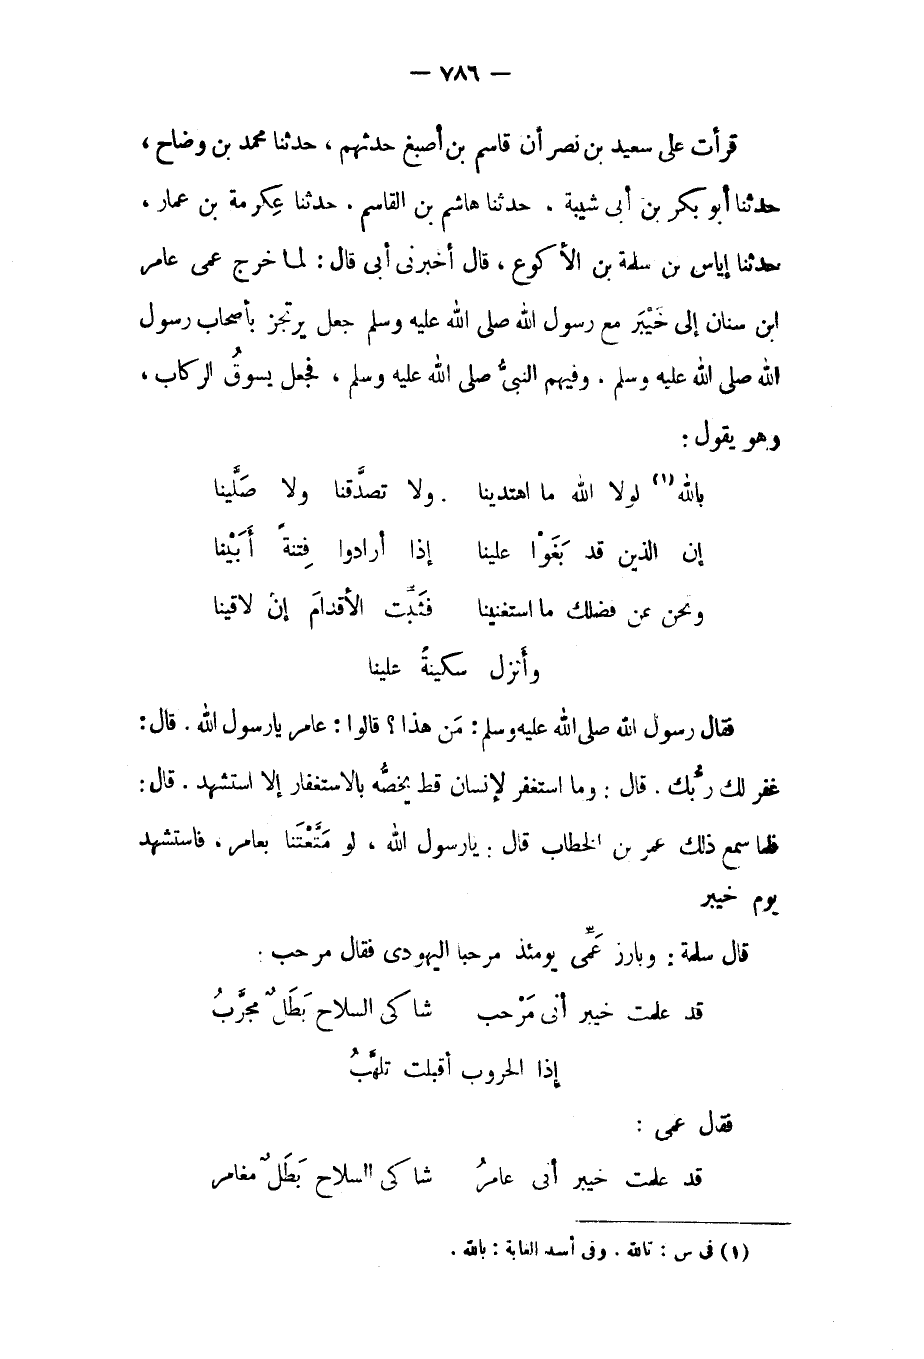 — ٧٨٦ —
قرأت على سعيد بن نصر أن قاسم بن أصبغ حدثهم ، حدثنا محمد بن وضاح ،
حدثنا أبو بكر بن أبى شيبة . حدثنا هاشم بن القاسم . حدثنا عِكرمة بن عمار ،
حدثنا إياس بن سلمة بن الأكوع ، قال أخبرنى أبى قال : لما خرج عمى عامر
ابن سنان إلى خَيْبَر مع رسول الله صلى الله عليه وسلم جعل يرتجز بأصحاب رسول
الله صلى الله عليه وسلم . وفيهم النبىُّ صلى الله عليه وسلم ، فجعل يسوقُ الركاب ،
وهو يقول :
بالله(١) لولا الله ما اهتدينا . ولا تصدَّقنا ولا صَلَّينا
إن الذين قد بَغَوْا علينا إذا أرادوا فِتنةً أَبَيْنا
ونحن عن فضلك ما استغنينا فَثَبِّت الأقدامَ إنْ لاقينا
وأَنزل سكينةً علينا
فقال رسول الله صلى الله عليه وسلم : مَن هذا ؟ قالوا : عامر يا رسول الله . قال :
غفر لك ربُّك . قال : وما استغفر لإنسان قط يخصُّه بالاستغفار إلا استشهد . قال :
فلما سمع ذلك عمر بن الخطاب قال : يا رسول الله ، لو مَتَّعْتَنا بعامر ، فاستشهد
يوم خيبر
قال سلمة : وبارز عَمِّى يومئذ مرحبا اليهودى فقال مرحب .
قد علمت خيبر أنى مَرْحب شاكى السلاح بَطَلٌ مجرَّبُ
إذا الحروب أقبلت تلهَّبُ
فقال عمى :
قد علمت خيبر أنى عامرُ شاكى السلاح بَطَلٌ مغامر
(١) فى س : تالله . وفى أسد الغابة : بالله .